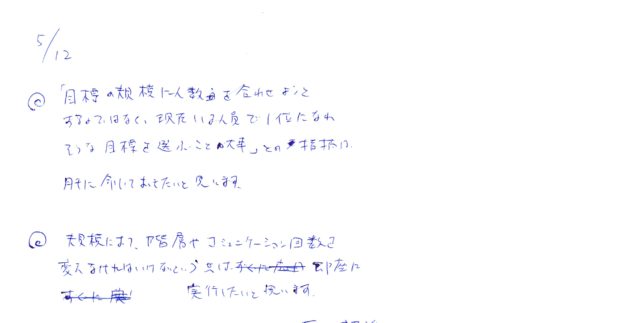 5/12
「目標の規模に人数を合わせようと
するのではなく、現在いる人員で1位になれ
そうな目標を選ぶことが大事」との指摘は、
肝に命じておきたいと思います。
規模によって、階層やコミュニケーション回数を
変えなければいけないという点は 即座に
実行したいと思います。